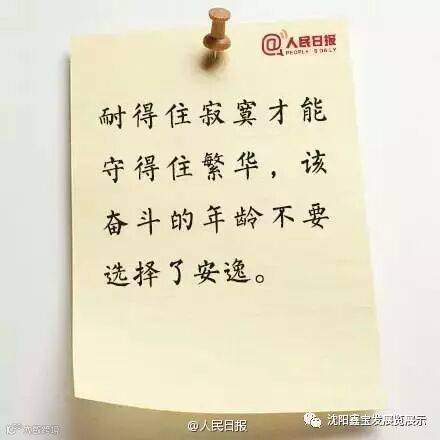 @人民日报
PEOPLE'S DAILY
耐得住寂寞才能
守得住繁华，该
奋斗的年龄不要
选择了安逸。
@人民日报
沈阳鑫宝发展览展示